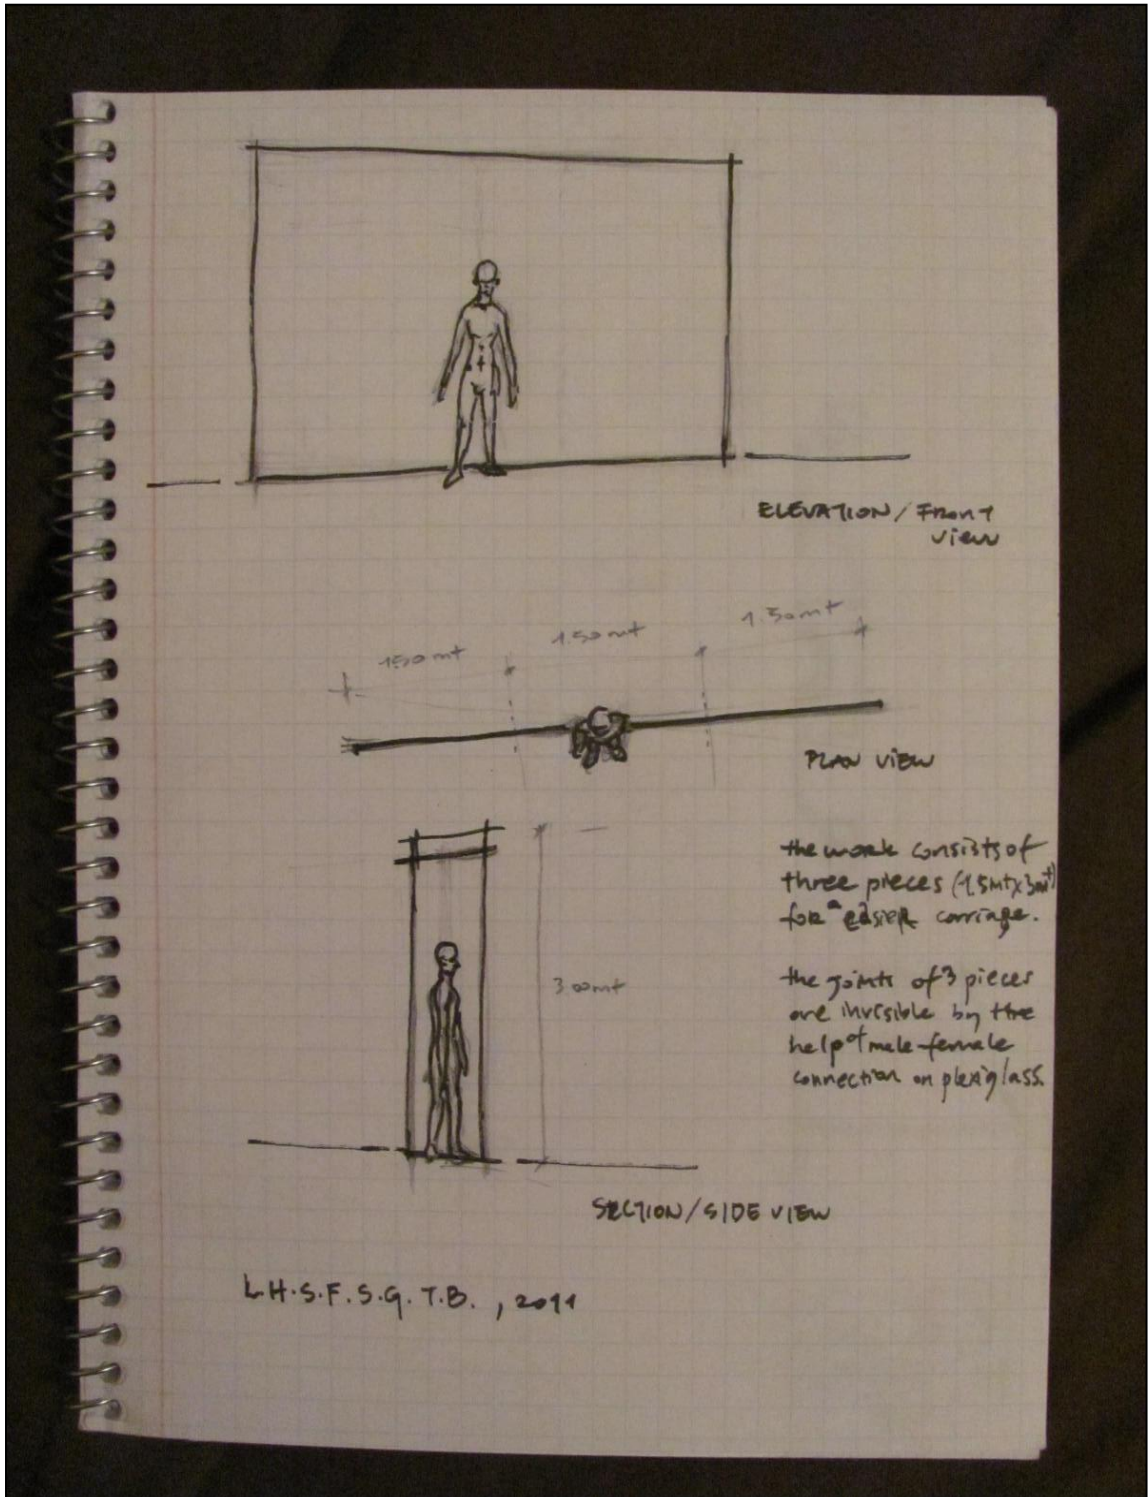 ELEVATION/Front
view
1.50mt
1.50mt
1.50mt
PLAN VIEW
the work consists of
three pieces (1.5mtx3mt)
for a easier carriage.
3.00mt
the joints of 3 pieces
are invisible by the
help of male-female
connection on plexiglass.
SECTION/SIDE VIEW
L.H.S.F.S.G.T.B., 2011